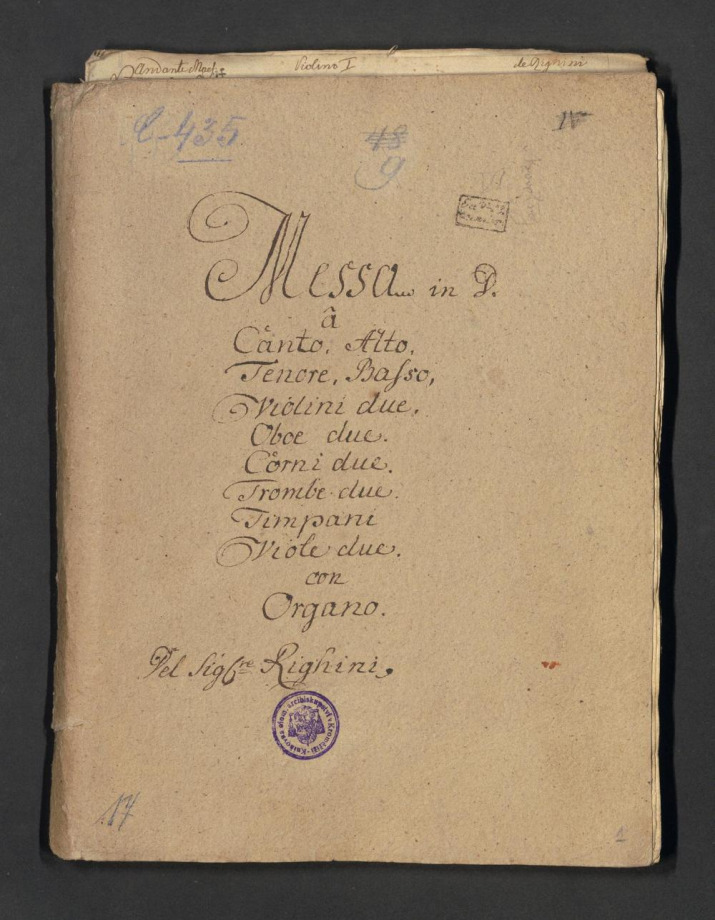 Andante Maest: Violino I de Righini
C-435
48
9
IV
Messa in D.
â
Canto, Alto,
Tenore, Basso,
Violini due,
Oboe due.
Corni due.
Trombe due.
Timpani
Viole due.
con
Organo.
Del Sig{re Righini.
Knihovna olom. arcibiskupství v Kroměříži
17
1